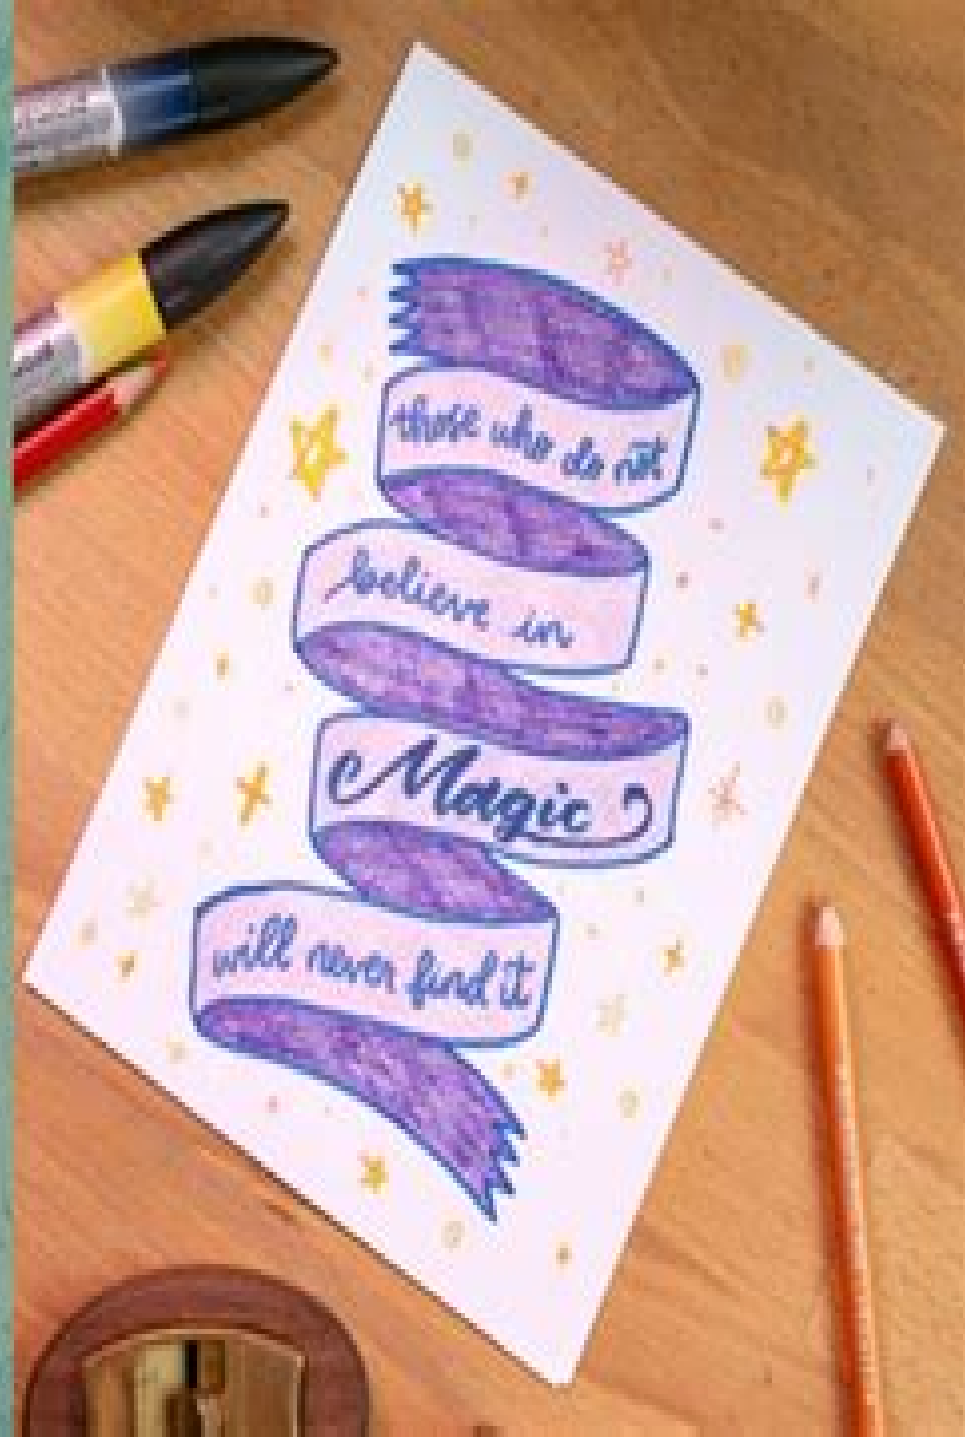 those who do not
believe in
Magic
will never find it